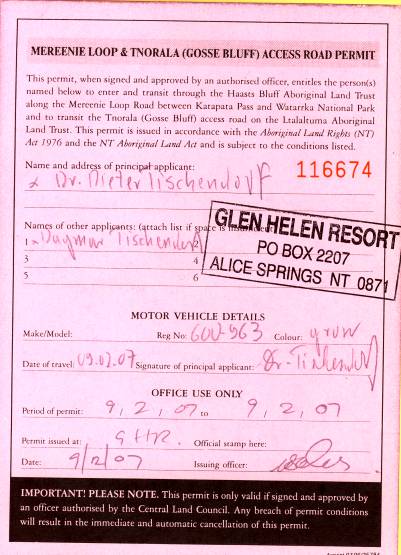 MEREENIE LOOP & TNORALA (GOSSE BLUFF) ACCESS ROAD PERMIT
This permit, when signed and approved by an authorised officer, entitles the person(s)
named below to enter and transit through the Haasts Bluff Aboriginal Land Trust
along the Mereenie Loop Road between Katapata Pass and Watarrka National Park
and to transit the Tnorala (Gosse Bluff) access road on the Ltalaltuma Aboriginal
Land Trust. This permit is issued in accordance with the Aboriginal Land Rights (NT)
Act 1976 and the NT Aboriginal Land Act and is subject to the conditions listed.
Name and address of principal applicant: 116674
x Dr. Dieter Tischendorf
Names of other applicants: (attach list if space is insufficient)
1 x Dagmar Tischendorf 2
3 4
5 6
GLEN HELEN RESORT
PO BOX 2207
ALICE SPRINGS NT 0871
MOTOR VEHICLE DETAILS
Make/Model: Reg No: 600-963 Colour:
Date of travel: 09.02.07 Signature of principal applicant: Dr. Tischendorf
OFFICE USE ONLY
Period of permit: 9, 2, 07 to 9, 2, 07
Permit issued at: GHR. Official stamp here:
Date: 9/2/07 Issuing officer:
IMPORTANT! PLEASE NOTE. This permit is only valid if signed and approved by
an officer authorised by the Central Land Council. Any breach of permit conditions
will result in the immediate and automatic cancellation of this permit.